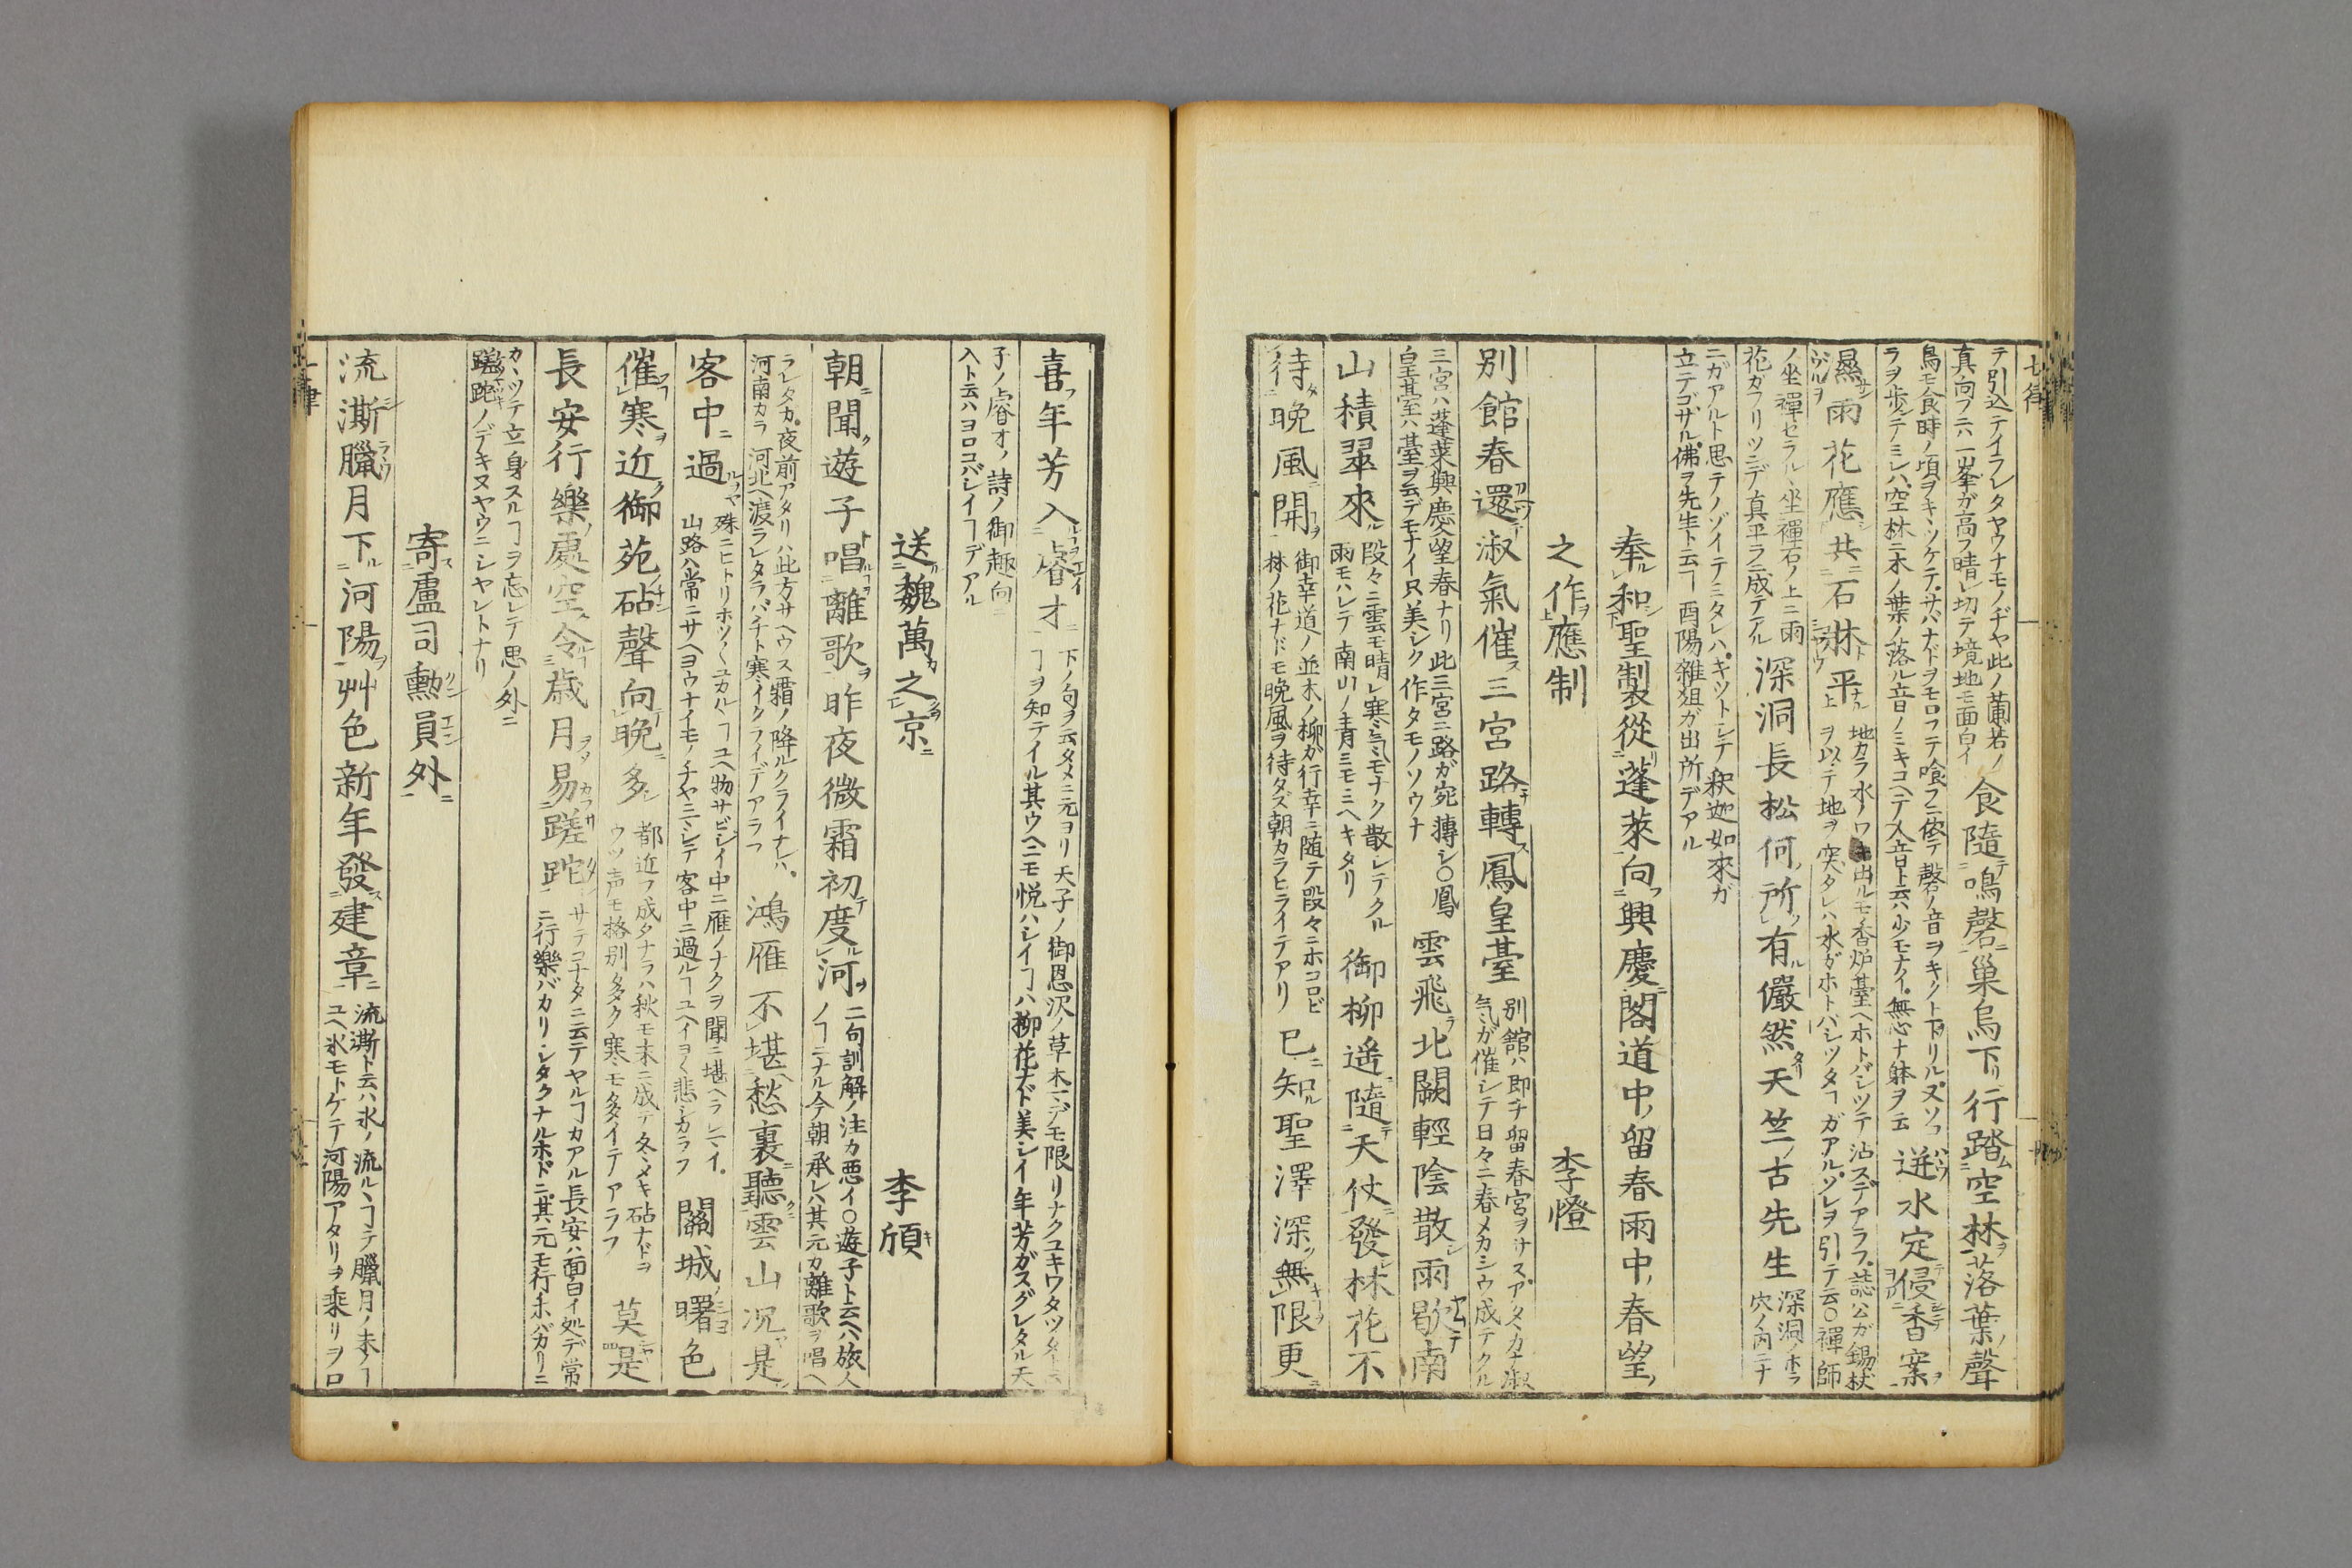 テ引込テイラレタヤウナモノヂヤ此ノ蘭若ノ
真向フニハ一峯ガ高フ晴レ切テ境地モ面白イ
食隨鳴磬巢烏下行踏空林落葉聲
鳥モ食時ノ頃ヲキヽツケテ
ラヲ歩テミレハ空林ニ木ノ葉ノ落ル音ノミキコヘテ人音ト云ハ少モナイ無心ナ躰ヲ云
迸水定侵香案
濕雨花應共石牀平
地カラ水ノワキ出ルモ香炉臺ヘホトバシツテ沾スデアラフ誌公ガ錫杖
ヲ以テ地ヲ突タレハ水ガホトバシツタヿガアルソレヲ引テ云○禪師
ノ坐禪セラルヽ坐禪石ノ上ニ雨
花ガフリツンデ真平ラニ成テアル
深洞長松何所有儼然天竺古先生
深洞ノ
穴ノ内ニナ
ニガアルト思テノゾイテミタレハキツトレテ釈迦如來ガ
立テゴザル佛ヲ先生ト云ヿ酉陽雜俎ガ出所デアル
奉和聖製從蓬萊向興慶閣道中留春雨中春望
之作應制　李憕
別館春還淑氣催三宮路轉鳳皇臺
別館ハ即チ留春宮ヲサスアタヽカナ淑
気ガ催シテ日々ニ春メカシウ成テクル
三宮ハ蓬萊興慶望春ナリ此三宮ニ路ガ宛轉シ○鳳
皇甚至ハ臺ヲ云デモナイ只美シク作タモノソウナ
雲飛北闕輕陰散雨歇南
山積翠來
段々ニ雲モ晴レ寒気モナク散レテクル
雨モハレテ南山ノ青ミモミヘキタリ
御柳遥隨天仗發林花不
待晩風開
御幸道ノ並木ノ柳ガ行幸ニ随テ段々ニホコロビ
林ノ花ナドモ晩風ヲ待タズ朝カラヒライテアリ
已知聖澤深無限更
喜年芳入睿才
下ノ句ヲ云タメニ元ヨリ天子ノ御恩沢ノ草木マデモ限リナクユキワタツタ
ヿヲ知テイル其ウヘニモ悦ハレイヿハ柳花ナド美シイ年芳ガスグレタル天
子ノ睿才ノ詩ノ御趣向ニ
入ト云ハヨロコバレイヿデアル
送魏萬之京　李頎
朝聞遊子唱離歌昨夜微霜初度河
二句訓解ノ注カ悪イ○遊子ト云ヘバ旅人
ノヿニナル今朝承レハ其元カ離歌ヲ唱ヘ
ラレタカ夜前アタリハ此方サヘウス霜ノ降ルクライナレハ
河南カラ河北ヘ渡ラレタラバチト寒イクライデアラフ
鴻雁不堪愁裏聽雲山況是
客中過
殊ニヒトリホツ〱ユカルヽヿユヘ物サビシイ中ニ雁ノナクヲ聞ニ堪ヘラレマイ
山路ハ常ニサヘヨウナイモノヂヤニマシテ客中ニ過ルヿユヘイヨ〱悲シカラフ
關城曙色
催寒近御苑砧聲向晩多
都近フ成タナラハ秋モ末ニ成テ冬メキ砧ナドヲ
ウツ声モ格別多ク寒モ多イテアラフ
莫是
長安行樂處空令歳月易蹉跎
サテコナタニ云テヤルヿカアル長安ハ面白イ処デ常
ニ行樂バカリシタクナルホドニ其元モ行末バカリニ
カヽツテ立身スルヿヲ忘レテ思ノ外ニ
蹉跎ノデキヌヤウニシヤレトナリ
寄盧司勲員外
流澌臘月下河陽艸色新年發建章
流澌ト云ハ氷ノ流ルヽヿテ臘月ノ末ノヿ
ユヘ氷モトケテ河陽アタリヲ乘リヲロ